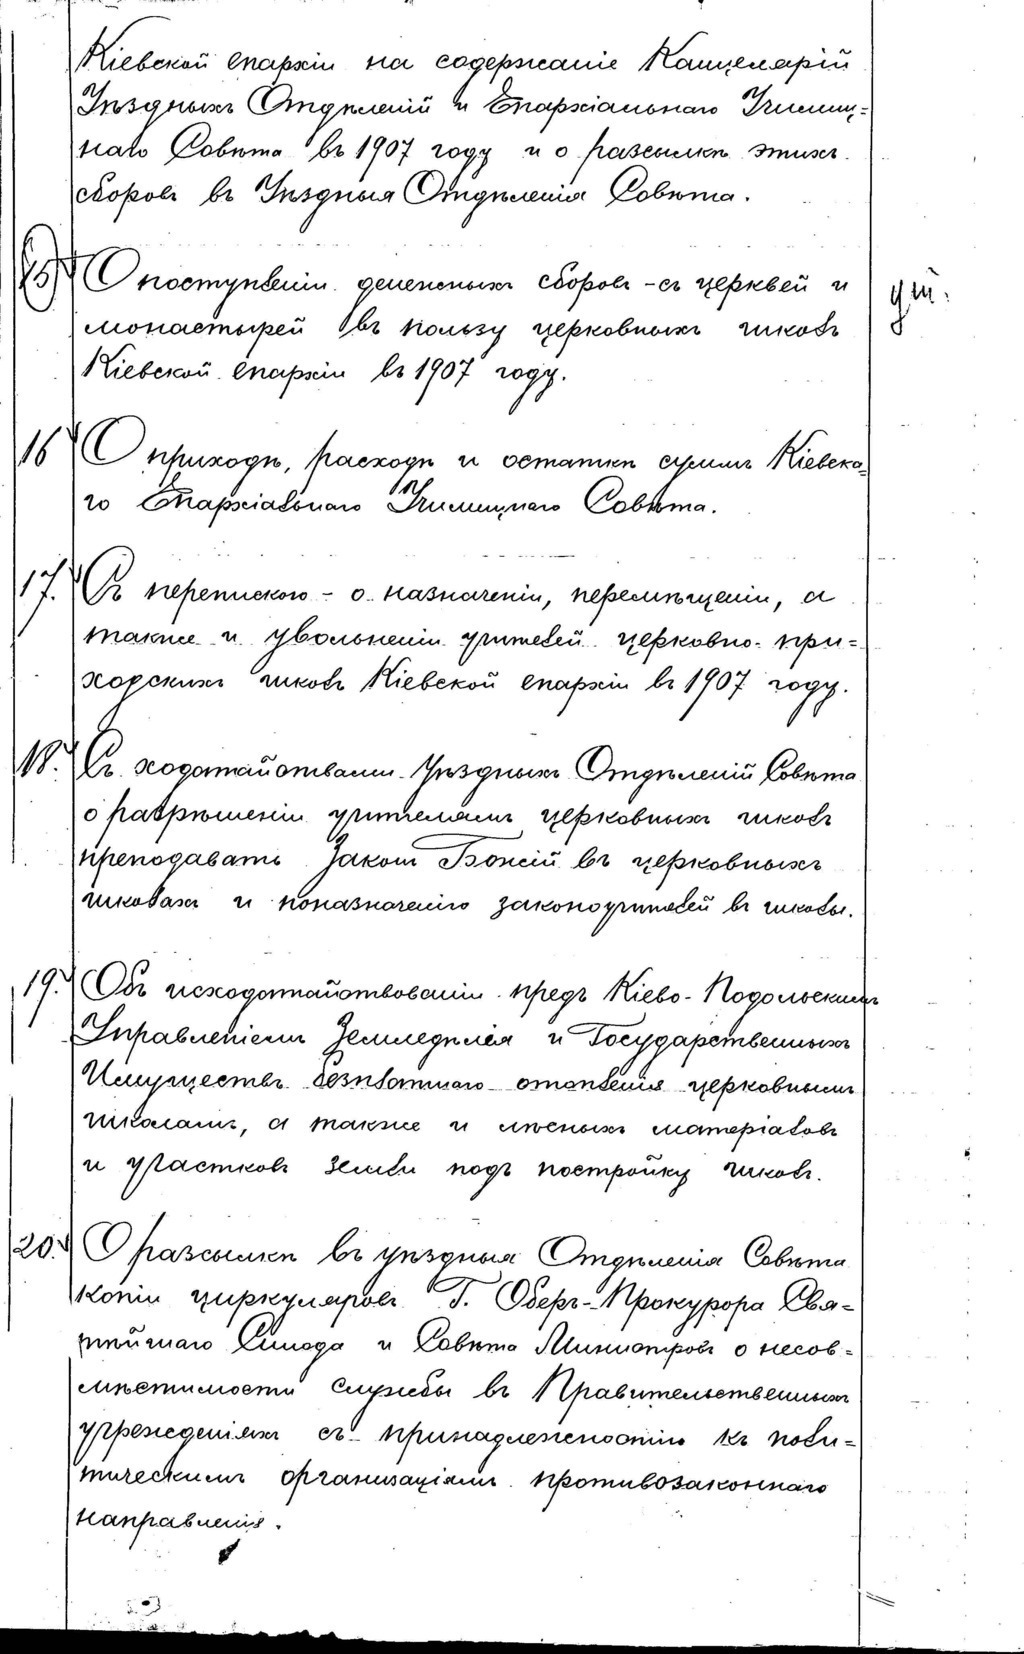 Кіевской епархіи на содержаніе Канцелярій
Уѣздныхъ Отдѣленій и Епархіальнаго Училищ=
наго Совѣта въ 1907 году и о разсылкѣ этихъ
сборовъ въ Уѣздныя Отдѣленія Совѣта.
15 О поступленіи денежныхъ сборовъ - съ церквей и
монастырей въ пользу церковныхъ школъ
Кіевской епархіи въ 1907 году.
16 О приходѣ, расходѣ и остаткѣ суммъ Кіевска=
го Епархіальнаго Училищнаго Совѣта.
17. Съ перепискою - о назначеніи, перемѣщеніи, а
также и увольненіи учителей церковно-при=
ходскихъ школъ Кіевской епархіи въ 1907 году.
18. Съ ходатайствами Уѣздныхъ Отдѣленій Совѣта
о разрѣшеніи учителямъ церковныхъ школъ
преподавать Законъ Божій въ церковныхъ
школахъ и по назначенію законоучителей въ школы.
19. Объ исходатайствованіи предъ Кіево-Подольскимъ
Управленіемъ Земледѣлія и Государственныхъ
Имуществъ безплатнаго отопленія церковнымъ
школамъ, а также и лѣсныхъ матеріаловъ
и участковъ земли подъ постройку школъ.
20. О разсылкѣ въ уѣздныя Отдѣленія Совѣта
копіи циркуляровъ Г. Оберъ-Прокурора Свя=
тѣйшаго Синода и Совѣта Министровъ о несов=
мѣстимости службы въ Правительственныхъ
учрежденіяхъ съ принадлежностію къ поли=
тическимъ организаціямъ противозаконнаго
направленія.